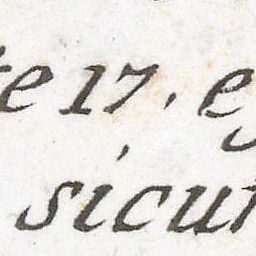 te 17, ej
sicut